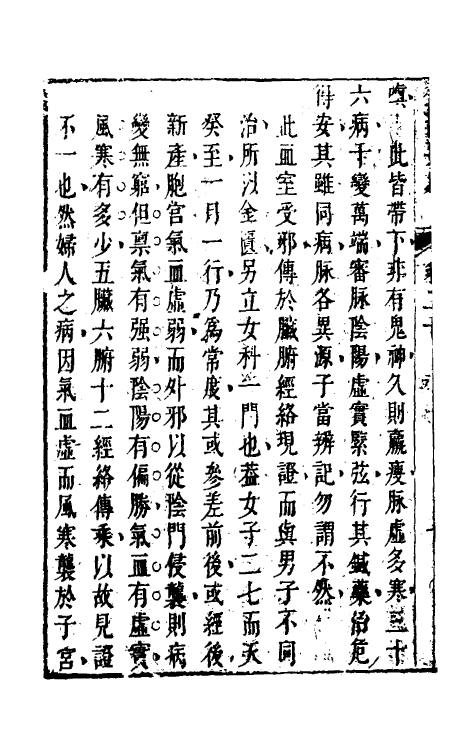 嗔此皆帶下非有鬼神久則羸瘦脉虛多寒三十
六病千變萬端審脉陰陽虛實緊弦行其鍼藥治危
得安其雖同病脉各異源子當辨記勿謂不然
此血室受邪傳於臟腑經絡現證而與男子不同
治所以金匱另立女科一門也葢女子二七而天
癸至一月一行乃爲常度其或參差前後或經後
新產胞宮氣血虛弱而外邪以從陰門侵襲則病
變無窮但禀氣有强弱陰陽有偏勝氣血有虛實
風寒有多少五臟六腑十二經絡傳乘以故見證
不一也然婦人之病因氣血虛而風寒襲於子宮